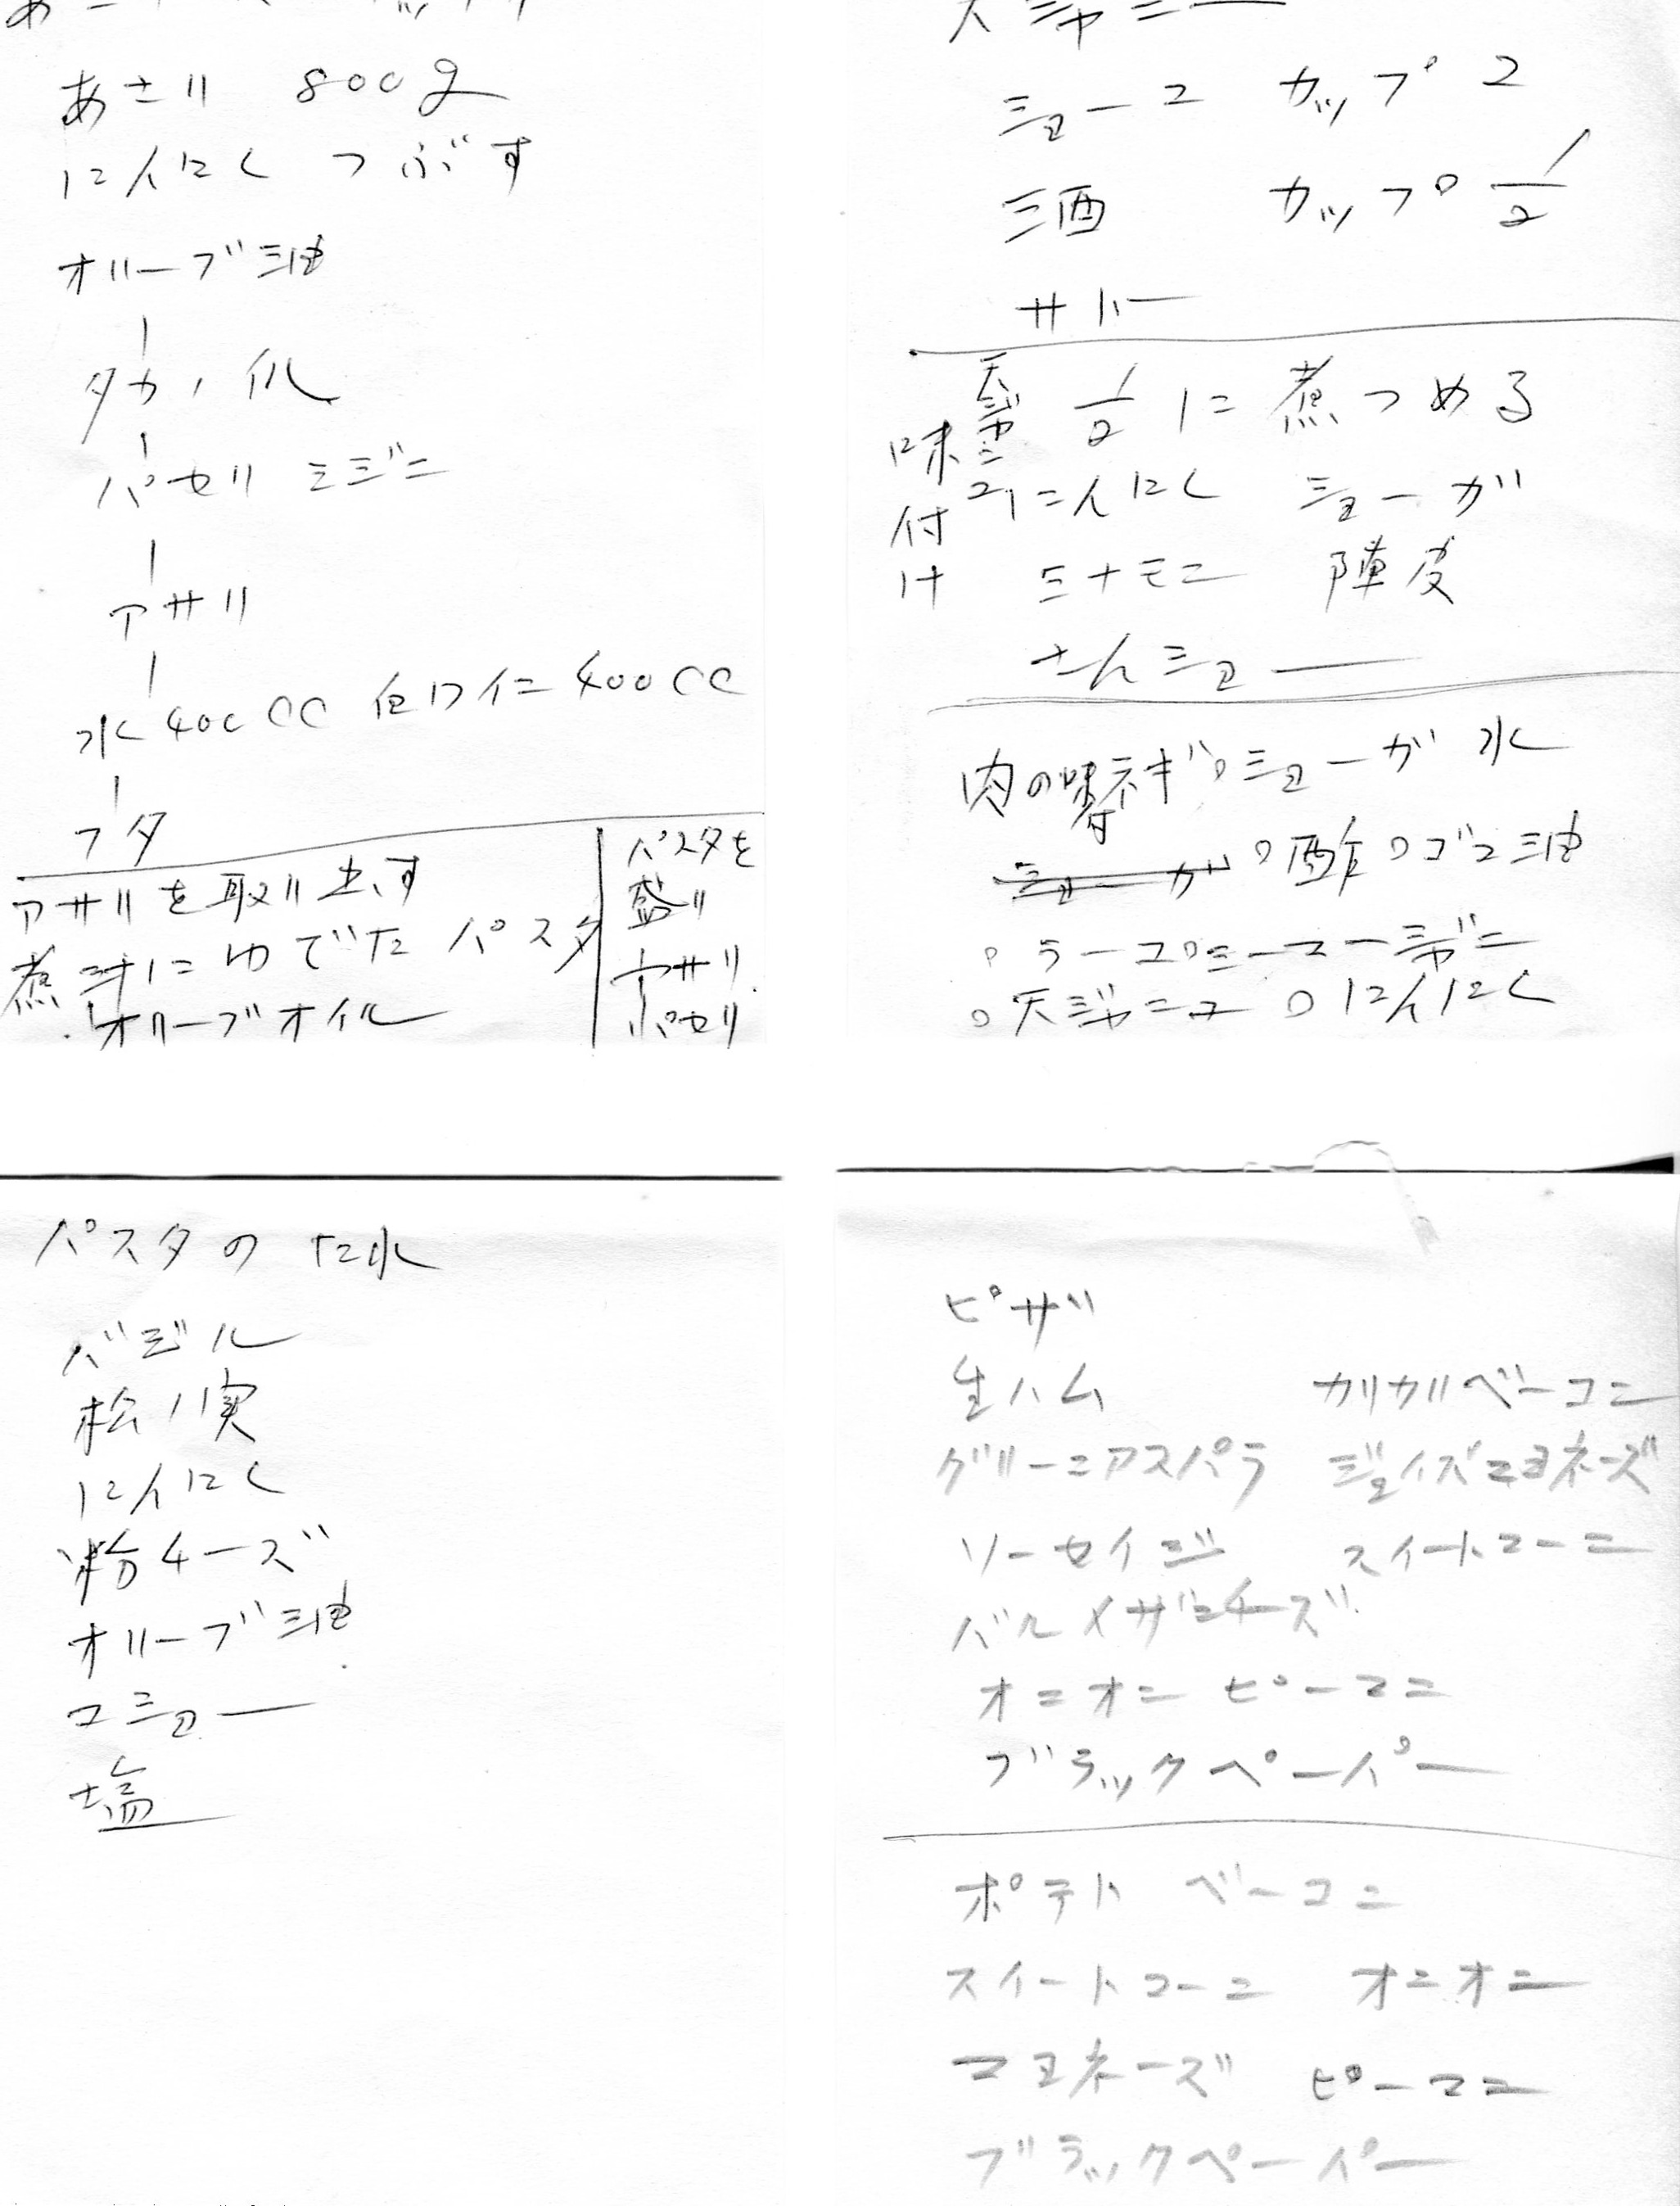 あさり 800g
にんにく つぶす
オリーブ油
タカノ爪
パセリ ミジン
アサリ
水400CC 白ワイン400CC
フタ
アサリを取り出す
煮汁にゆでたパスタ
オリーブオイル
パスタを
盛り
アサリ
パセリ
ショーユ カップ2
酒 カップ1/2
サトー
1/2に煮つめる
味付け
にんにく ショーガ
シナモン 陳皮
さんショー
肉の味付 ネギ ○ショーガ 水
ショーガ ○酢 ○ゴマ油
○ラー ユ
○にんにく
パスタの たれ
バジル
松ノ実
にんにく
粉チーズ
オリーブ油
コショー
塩
ピザ
生ハム カリカリベーコン
グリーンアスパラ ジェイズマヨネーズ
ソーセイジ スイートコーン
パルメザンチーズ
オニオン ピーマン
ブラックペーパー
ポテト ベーコン
スイートコーン オニオン
マヨネーズ ピーマン
ブラックペーパー